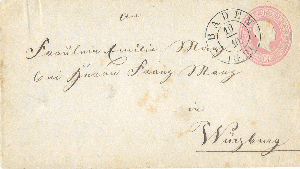 An
Fräulein Emilie Mang
bei Herrn Franz Mang
in
Würzburg
BADEN